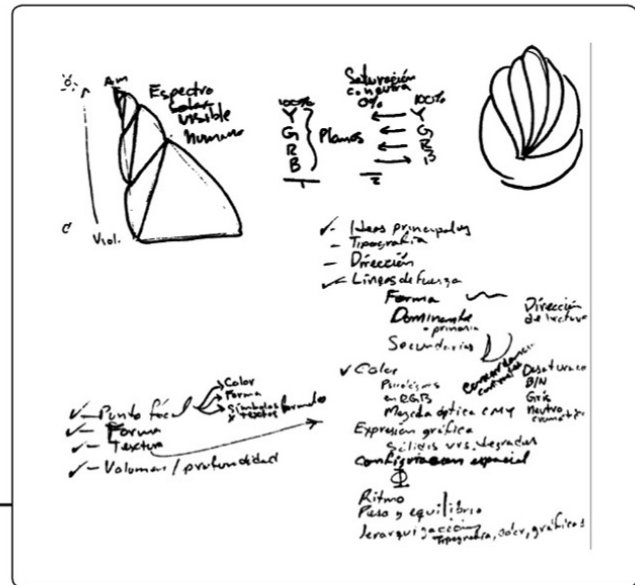 Am
Espectro
Solar
visible
humano
Viol.
Saturación
con neutra
100% 0% 100%
Y Y
G Planos G
R R
B B
1 2
✓- Ideas principales
- Tipografía
- Dirección
✓- Líneas de fuerza
Forma
Dominante
o primaria
Secundarias
Dirección
de lectura
✓ Color
en RGB
Mezcla óptica CMY
Desatura
B/N
Gris
neutro
Expresión gráfica
Sólidos vrs. degradas
configuracion espacial
Φ
Ritmo
Peso y equilibrio
Jerarquización
Tipografía, color, gráficos
✓- Punto focal
Color
Forma
Símbolos
y textos
formato
✓- Forma
✓- Textura
✓- Volumen / profundidad